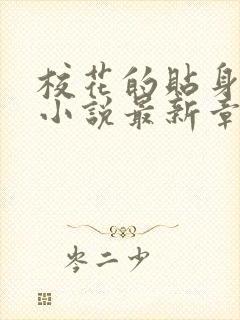 校花的貼身
小說最新章
岑二少